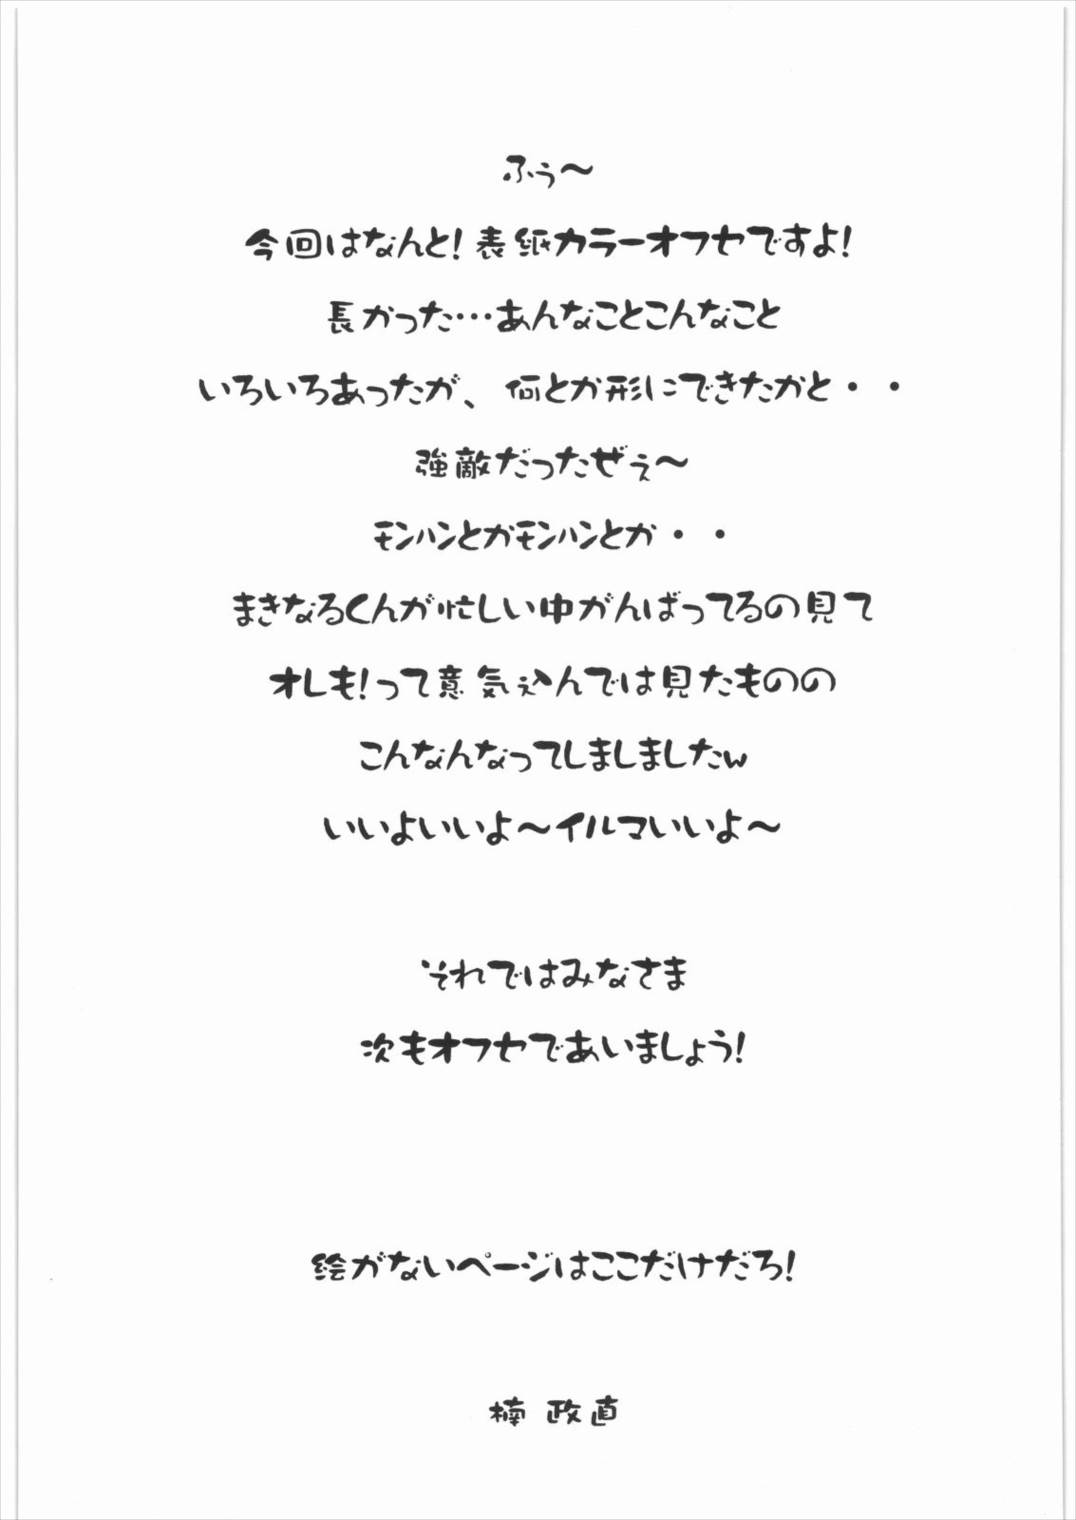 ふぅ～
今回はなんと!表紙カラーオフセですよ!
長かった…あんなことこんなこと
いろいろあったが、何とか形にできたかと・・
強敵だったぜぇ～
モンハンとかモンハンとか・・
まきなるくんが忙しい中がんばってるの見て
オレも!って意気込んでは見たものの
こんなんなってしましましたw
いいよいいよ～イルマいいよ～
それではみなさま
次もオフセであいましょう!
絵がないページはここだけだろ!
楠 政直